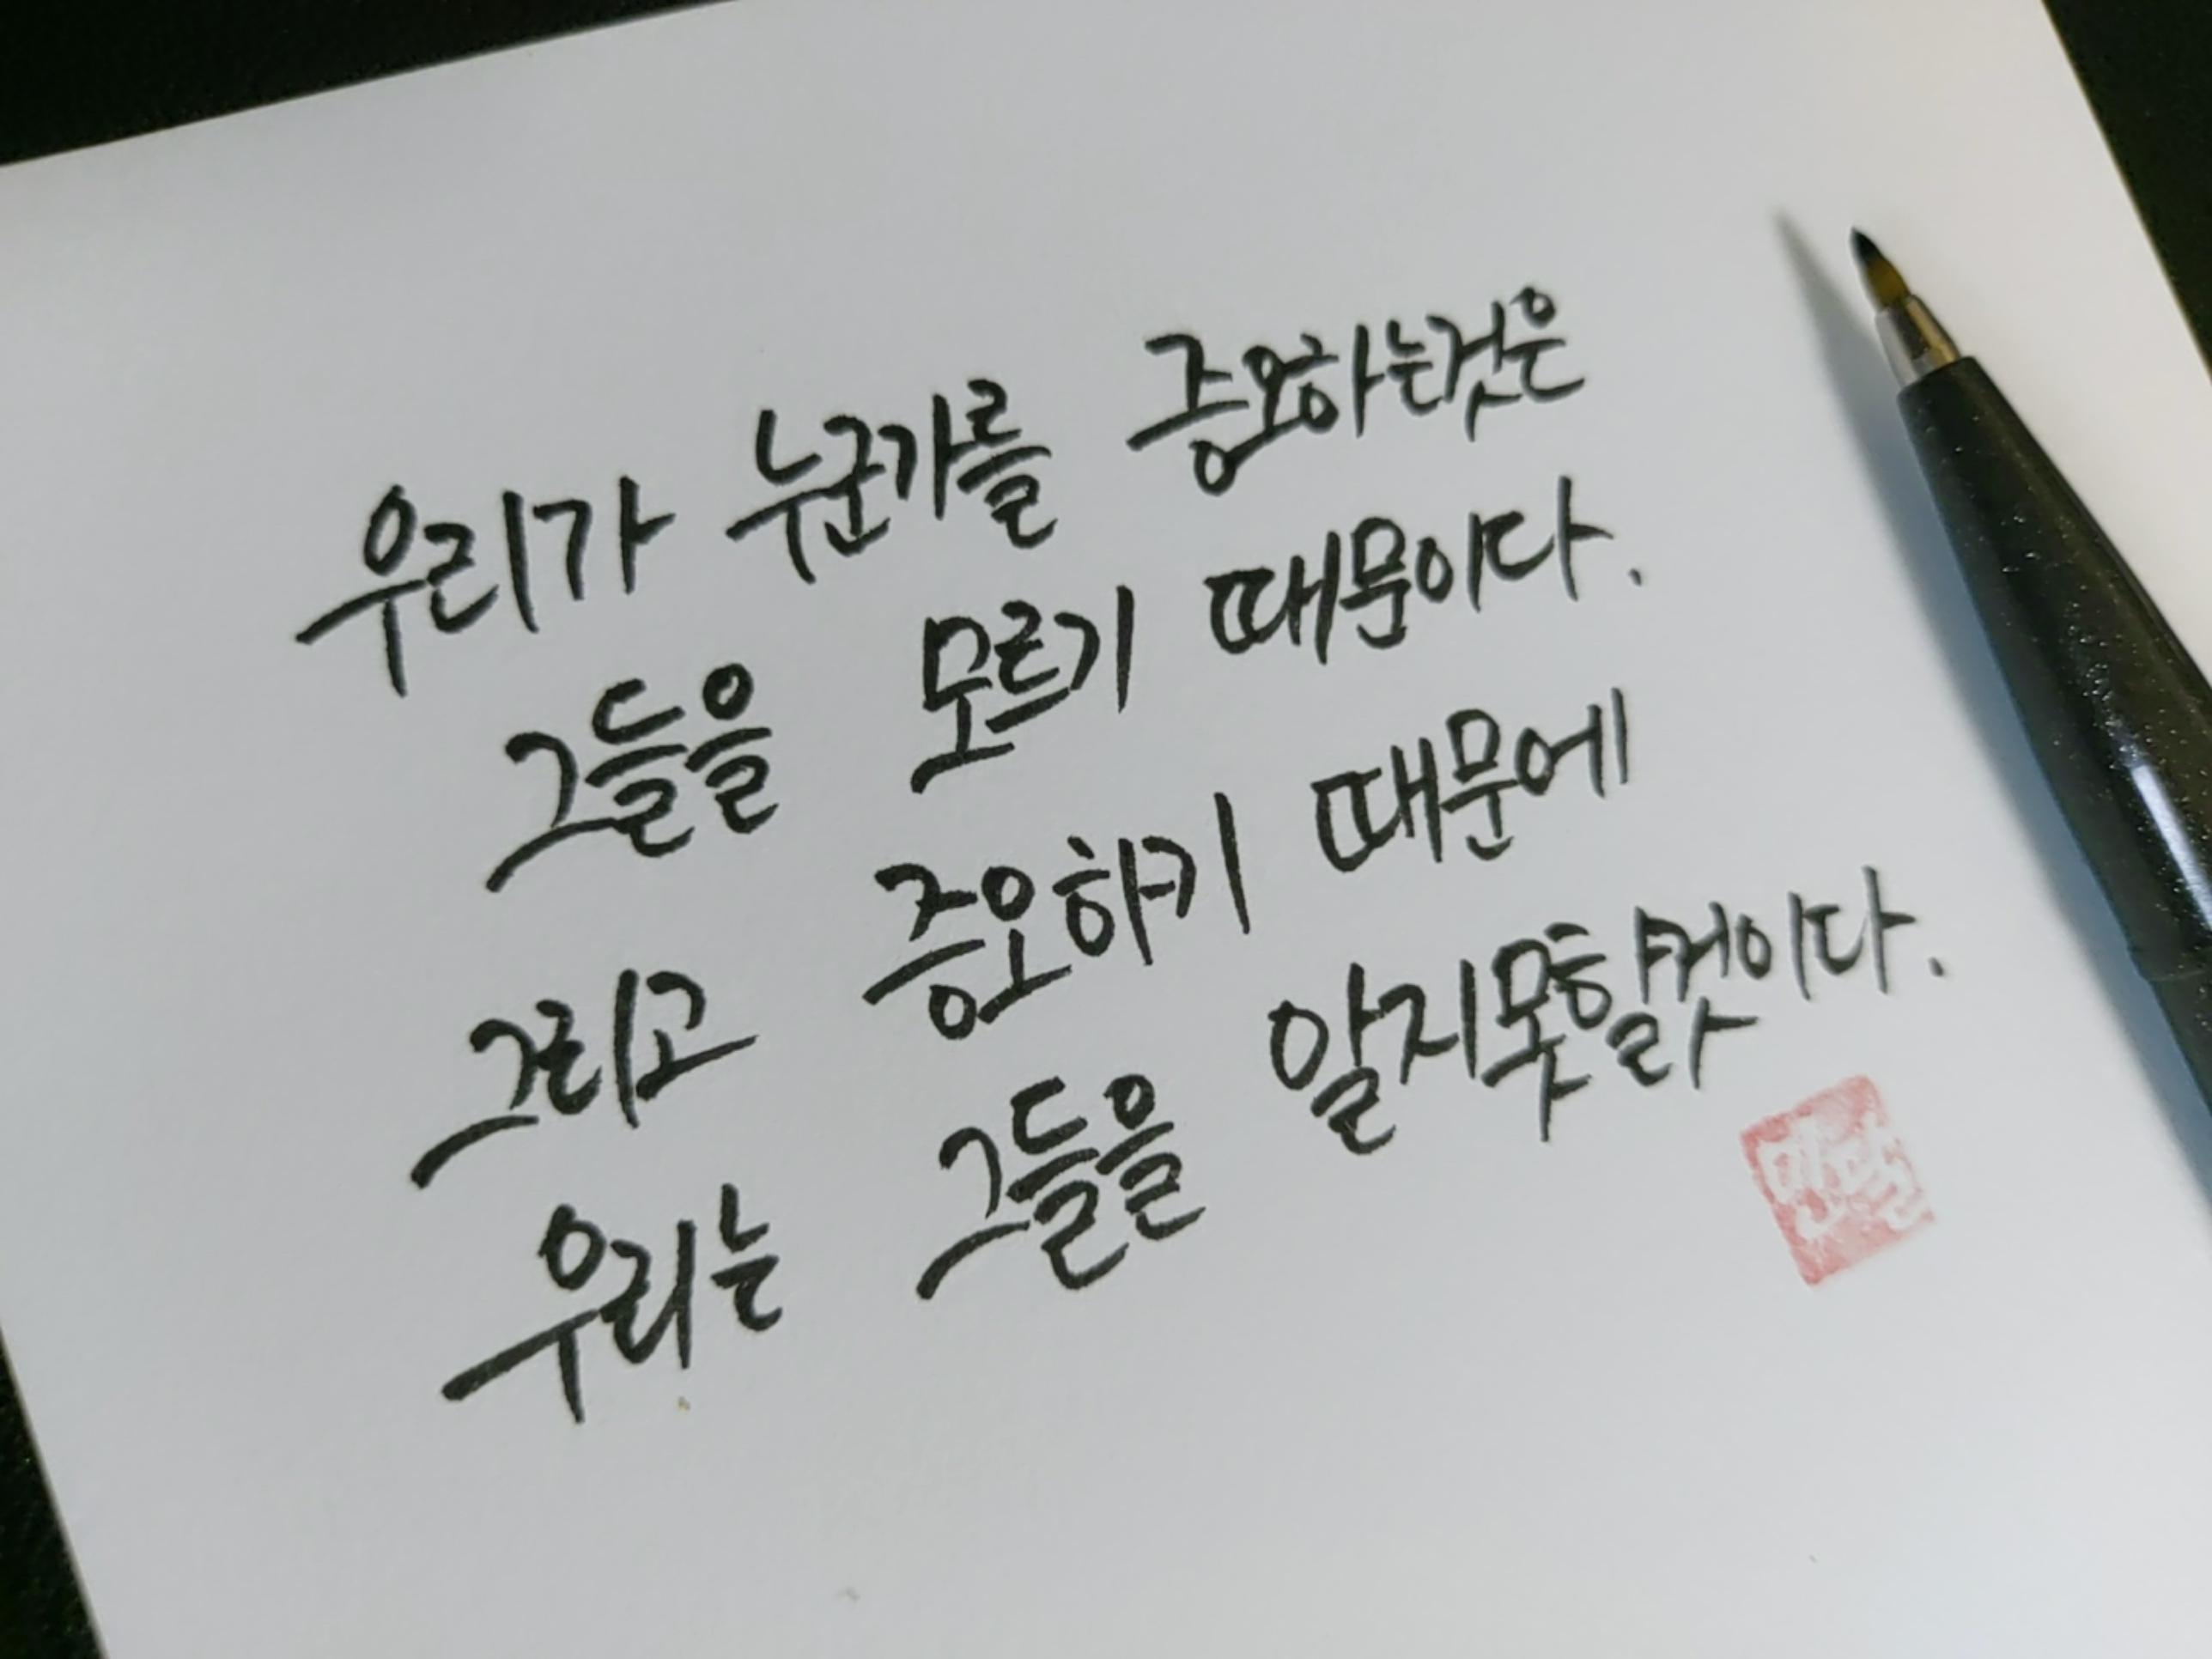 우리가 누군가를 증오하는것은
그들을 모르기 때문이다.
그리고 증오하기 때문에
우리는 그들을 알지못할것이다.